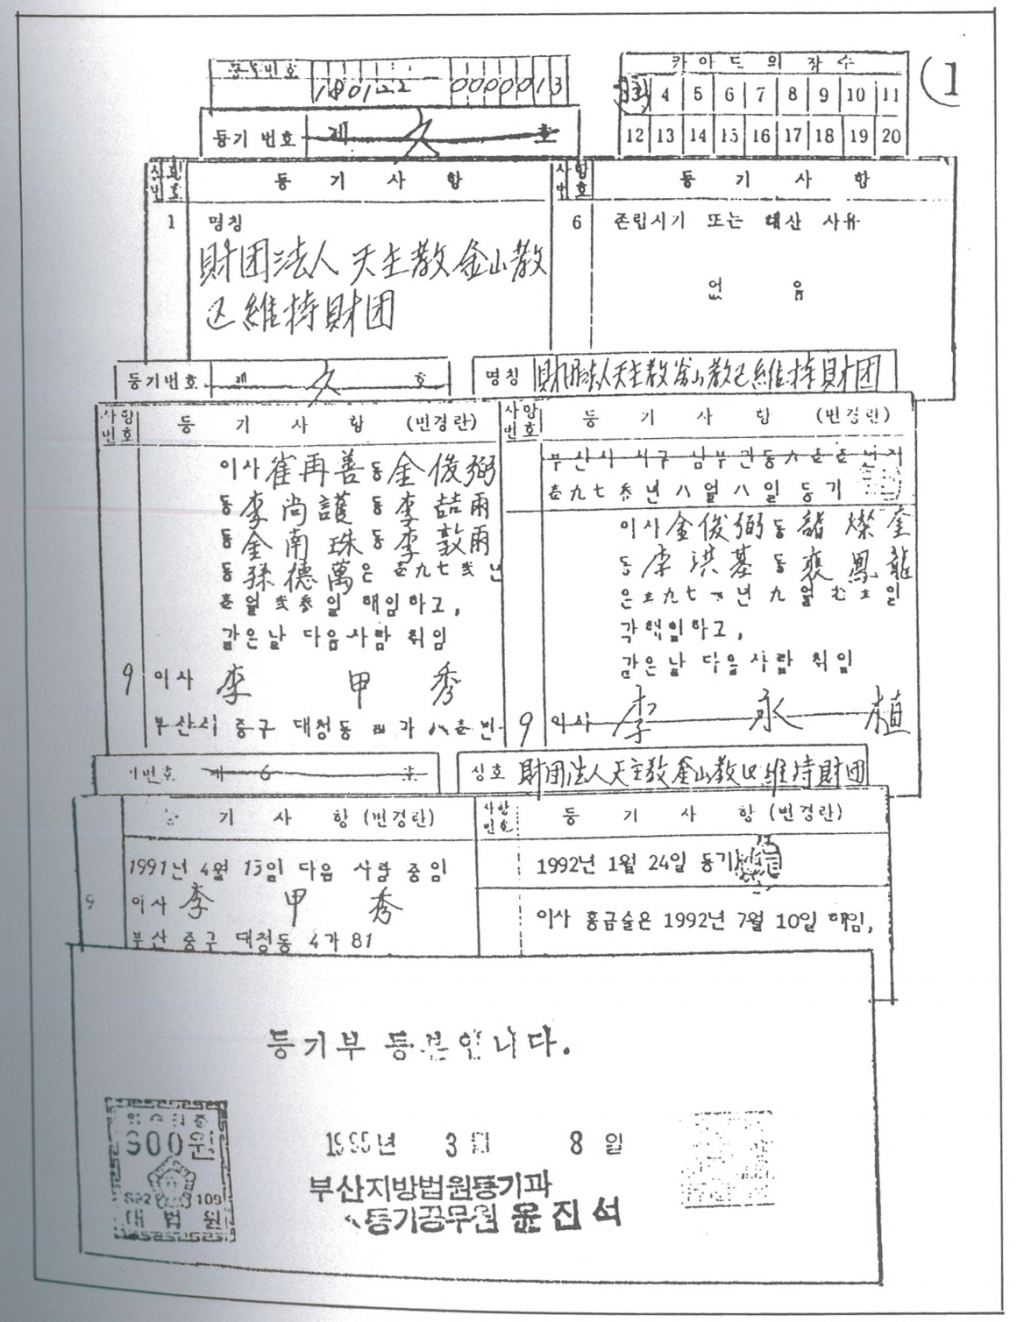 등록번호 180122 0000013
카아드의 장수
3 4 5 6 7 8 9 10 11
12 13 14 15 16 17 18 19 20
(1
등기 번호 제 호
사항번호 등 기 사 항
1 명칭
財団法人 天主教 釜山教
区 維持財団
사항번호 등 기 사 항
6 존립시기 또는 해산 사유
없 음
등기번호 제 호
명칭 財団法人天主教釜山教区維持財団
사항번호 등 기 사 항 (변경란)
이사 崔再善 동 金俊弼
동 李尚護 동 李喆雨
동 金南珠 동 李敦雨
동 孫德萬 은 壱九七弐년
壱월 弐参일 해임하고,
같은날 다음사람 취임
9 이사 李 甲 秀
부산시 중구 대청동 四가 八壱번
사항번호 등 기 사 항 (변경란)
부산시 서구 남부민동
壱九七参년 八월 八일 등기
이사 金俊弼 동 燦奎
동 李洪基 동 裵鳳龍
은 壱九七 년 九월 일
각 해임하고,
같은날 다음사람 취임
9 이사 李 永 植
번호 제 6 호
상호 財団法人天主教釜山教区維持財団
등 기 사 항 (변경란)
1991년 4월 15일 다음 사람 중임
9 이사 李 甲 秀
부산 중구 대청동 4가 81
사항번호 등 기 사 항 (변경란)
1992년 1월 24일 등기
이사 홍금술은 1992년 7월 10일 해임,
등기부 등본입니다.
300원
대법원
1995년 3월 8일
부산지방법원등기과
등기공무원 윤진석